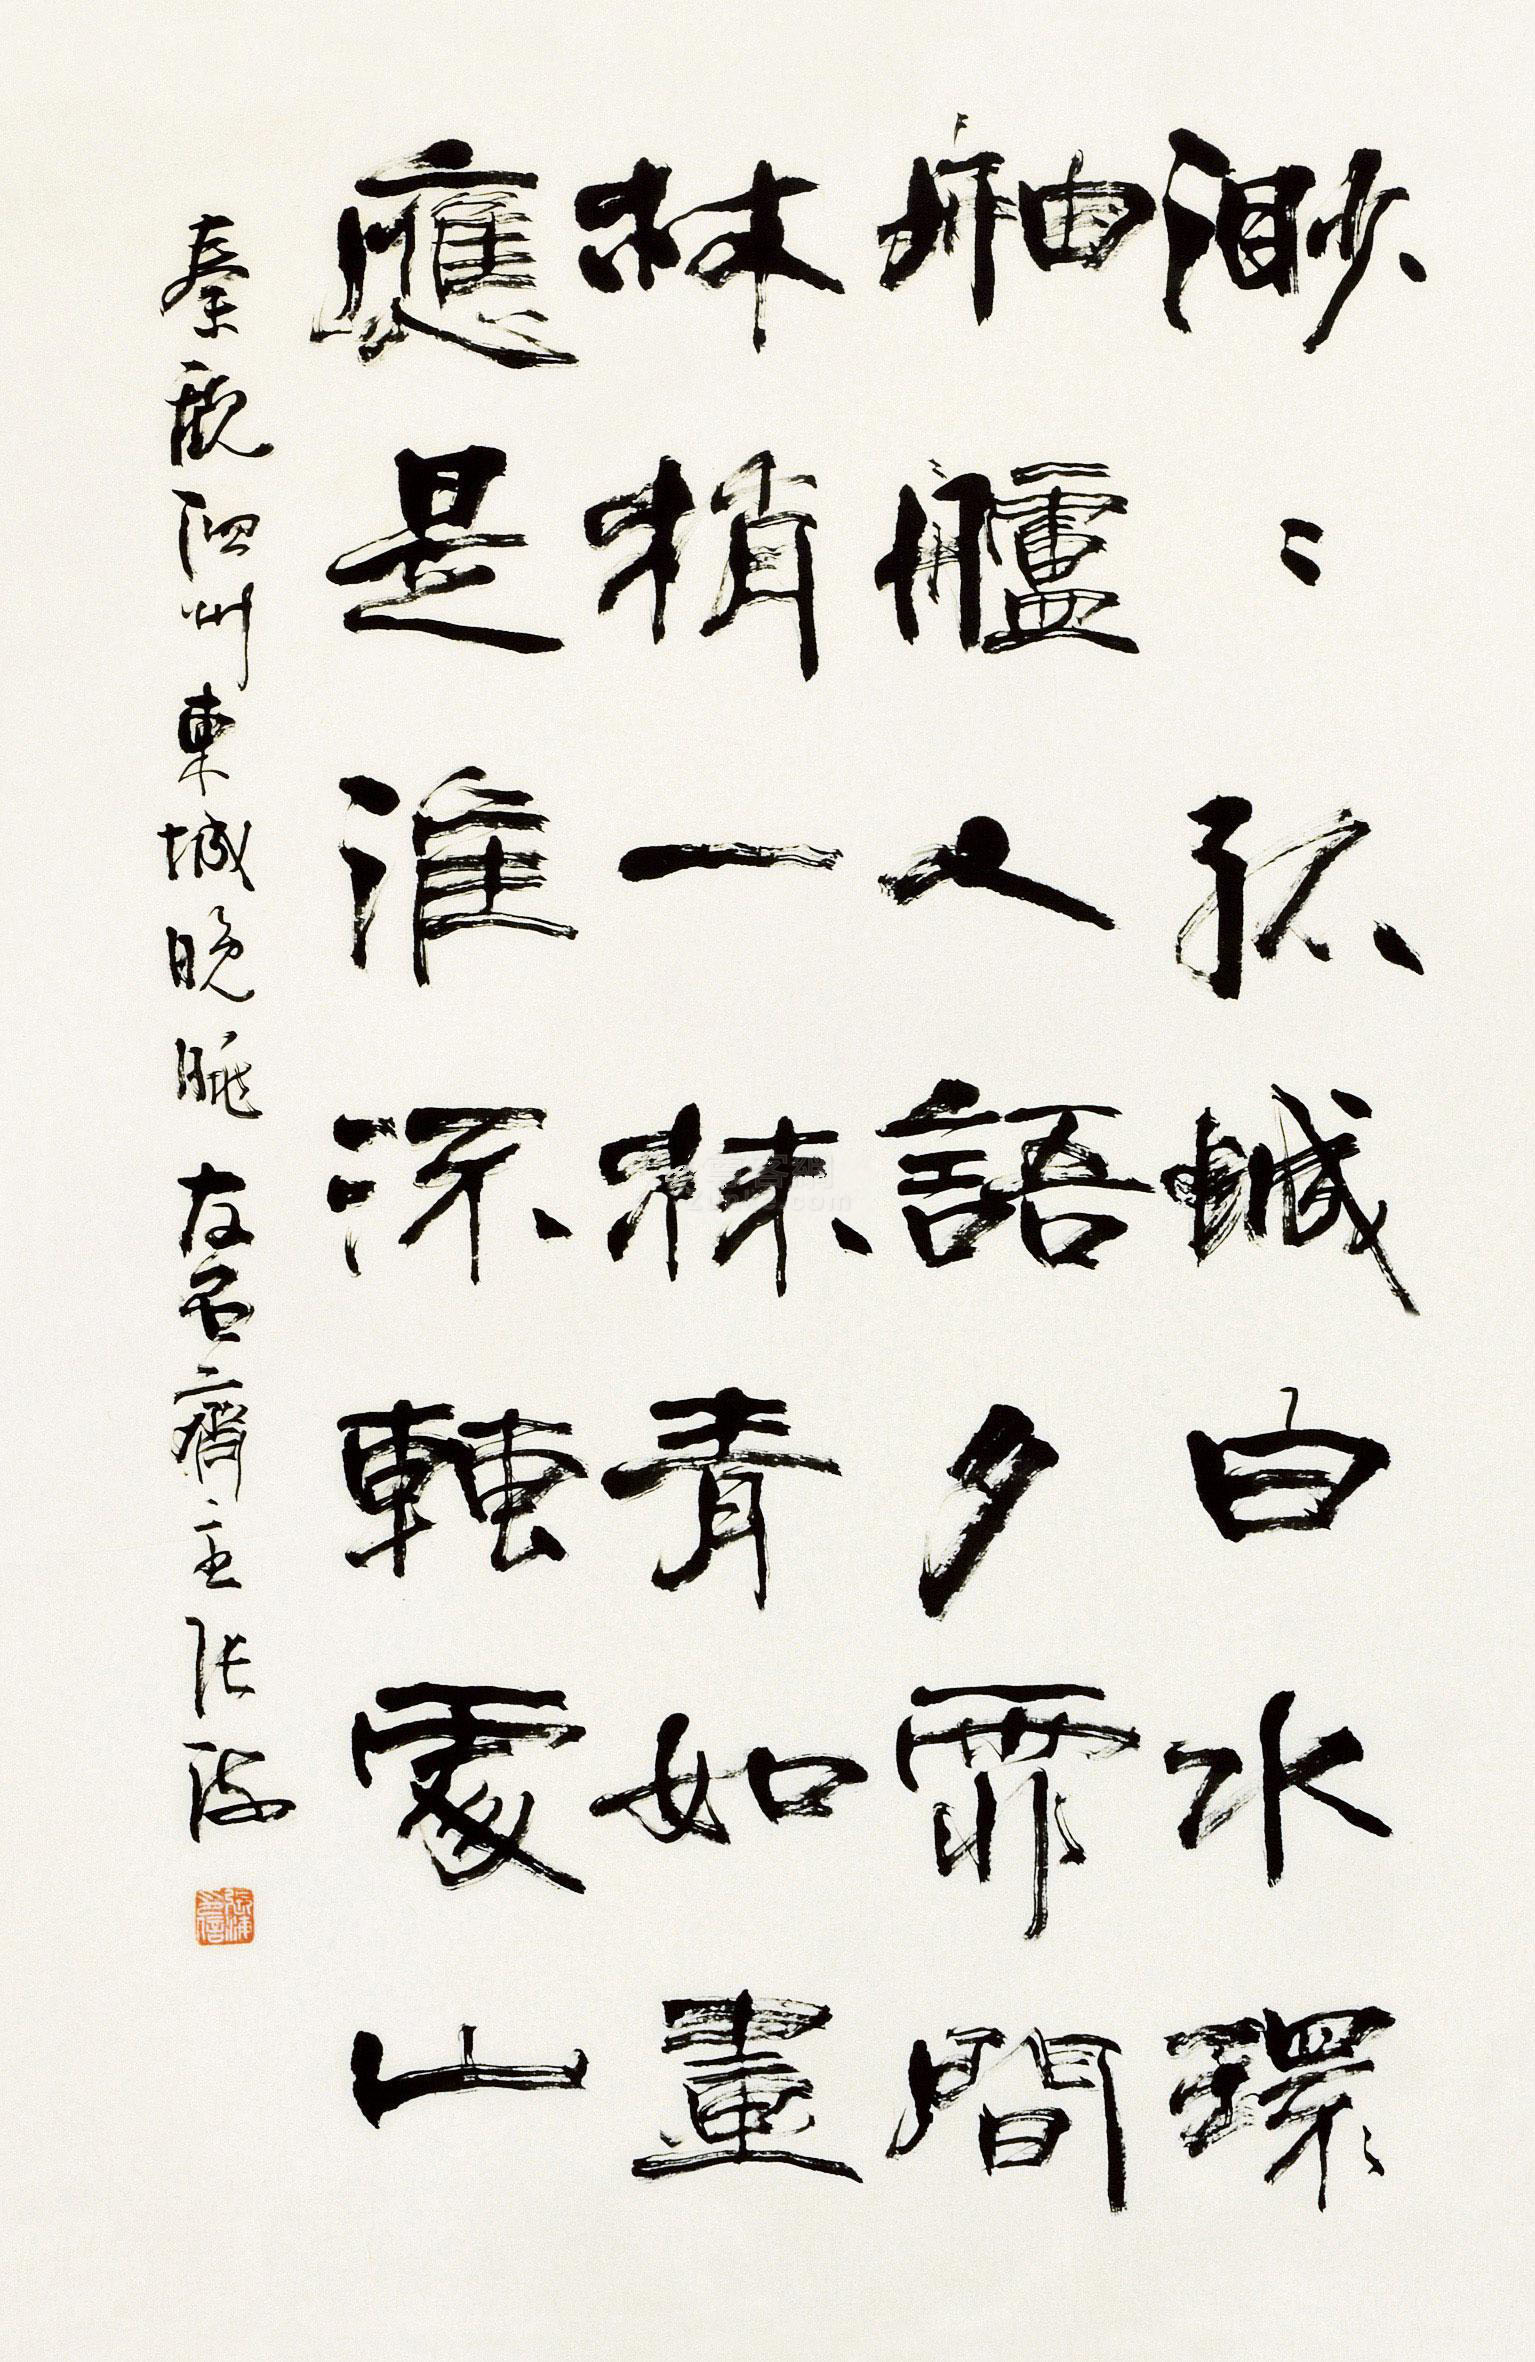 渺〻孤城白水環
舳艫人語夕霏間
林梢一抹青如畫
應是淮流轉處山
秦觀泗州東城晚眺 齋主張海
張海印信